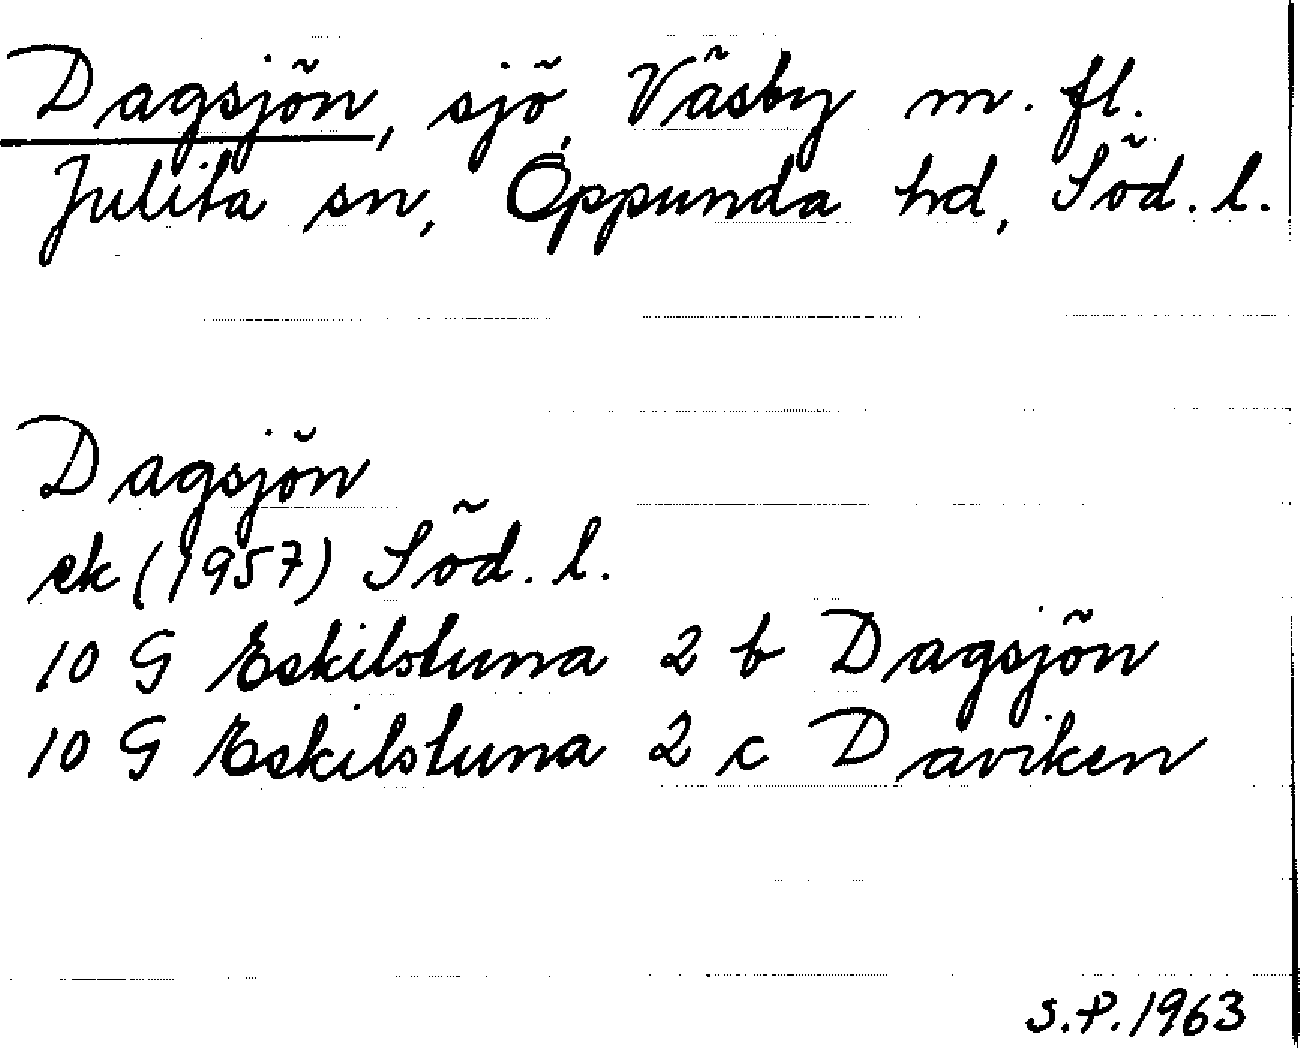 Dagsjön, sjö, Väsby m. fl.
Julita sn, Oppunda hd, Söd. l.
Dagsjön
ek (1957) Söd. l.
10 G Eskilstuna 2 b Dagsjön
10 G Eskilstuna 2 c Daviken
S.P. 1963